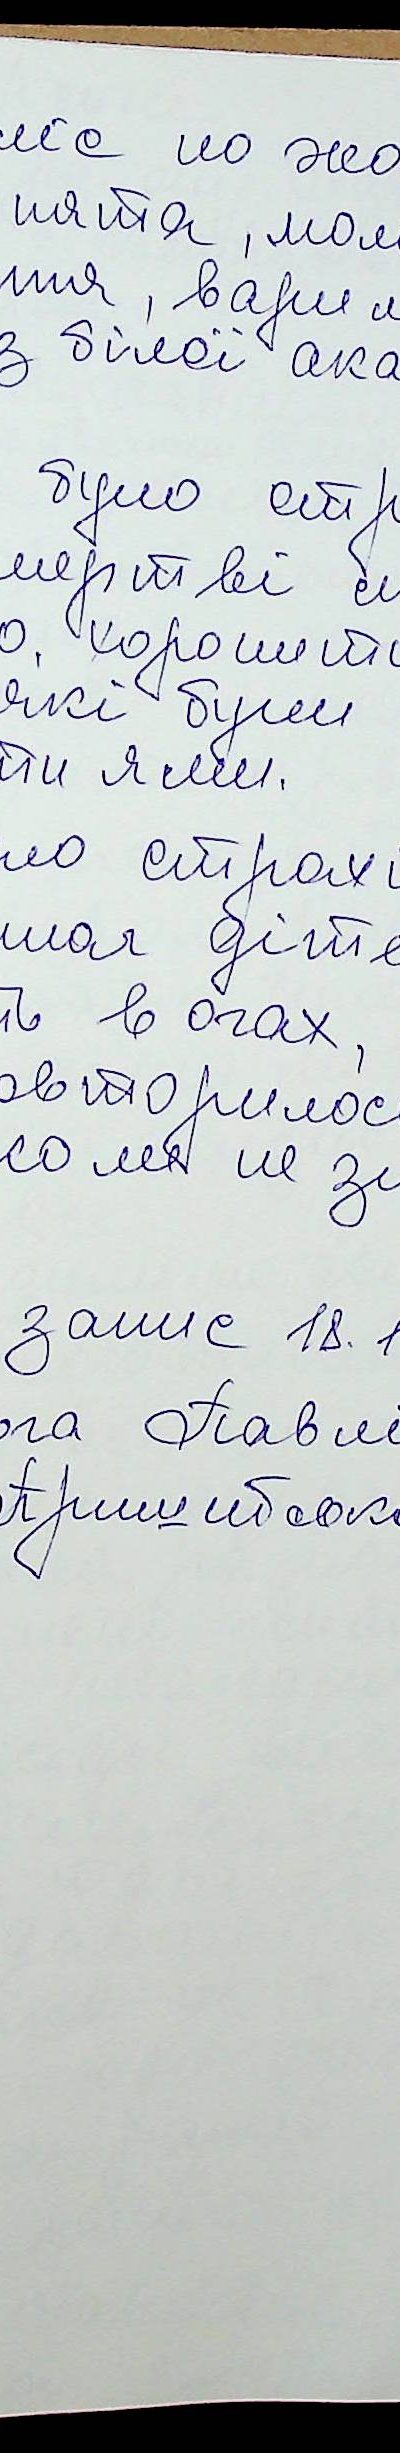 ліс по жо
пята, мол
ння, варил
з білої ака
було стр
мертві
о, хоронити
які були
ти ями.
ло страхі
діте
ть в очах,
овторилос
не зн
запис 18. 1
ога Павлі